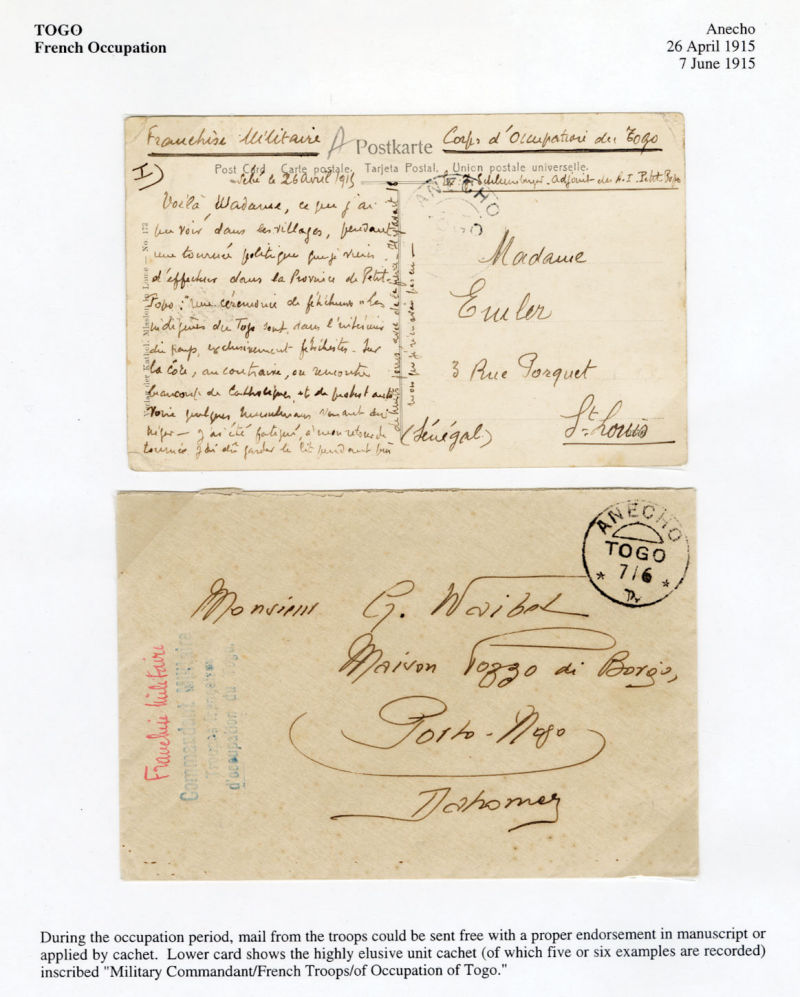 TOGO
French Occupation
Anecho
26 April 1915
7 June 1915
Franchise Militaire
A
Postkarte
Corps d'Occupation du Togo
Post Card Carte postale. Tarjeta Postal. Union postale universelle.
le 26 avril 1915
Petit Popo
I)
ANECHO
Voilà Madame, ce que j'ai
pu voir dans les villages, pendant
une tournée politique que je viens
d'effectuer dans la Province de Petit-
Popo: "une cérémonie de féticheurs" Les
indigènes du Togo sont, dans l'intérieur
du pays, exclusivement fétichistes. Sur
la Côte, au contraire, on rencontre
beaucoup de Catholiques, et de protestants
Voire quelques musulmans venant du
Niger — J'ai été fatigué, à mon retour de
tournée. J'ai dû garder le lit pendant
Verlag der Kathol. Mission in Lome — No. 173
Madame
Emler
3 Rue Porquet
St. Louis
(Sénégal)
ANECHO
TOGO
7/6
* *
Monsieur G. Waibel
Maison Pozzo di Borgo,
Porto-Novo
Dahomey
Franchise Militaire
Commandant Militaire
Troupes Françaises
d'occupation du Togo
During the occupation period, mail from the troops could be sent free with a proper endorsement in manuscript or
applied by cachet. Lower card shows the highly elusive unit cachet (of which five or six examples are recorded)
inscribed "Military Commandant/French Troops/of Occupation of Togo."